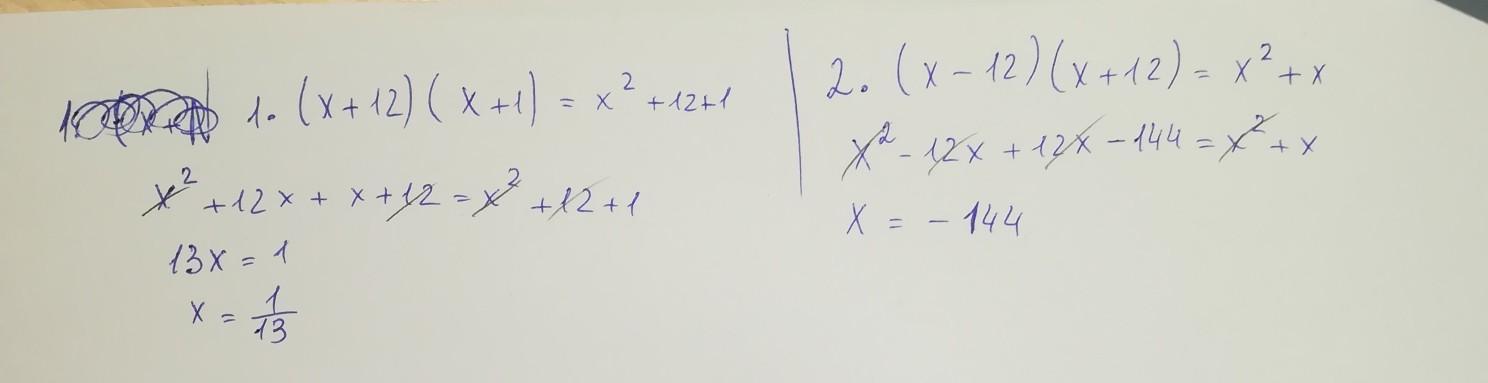 1. (x+12)(x+1) = x² +12+1
x² +12x + x +12 = x² +12+1
13x = 1
x = 1/13
2. (x-12)(x+12) = x² + x
x² - 12x + 12x - 144 = x² + x
x = - 144